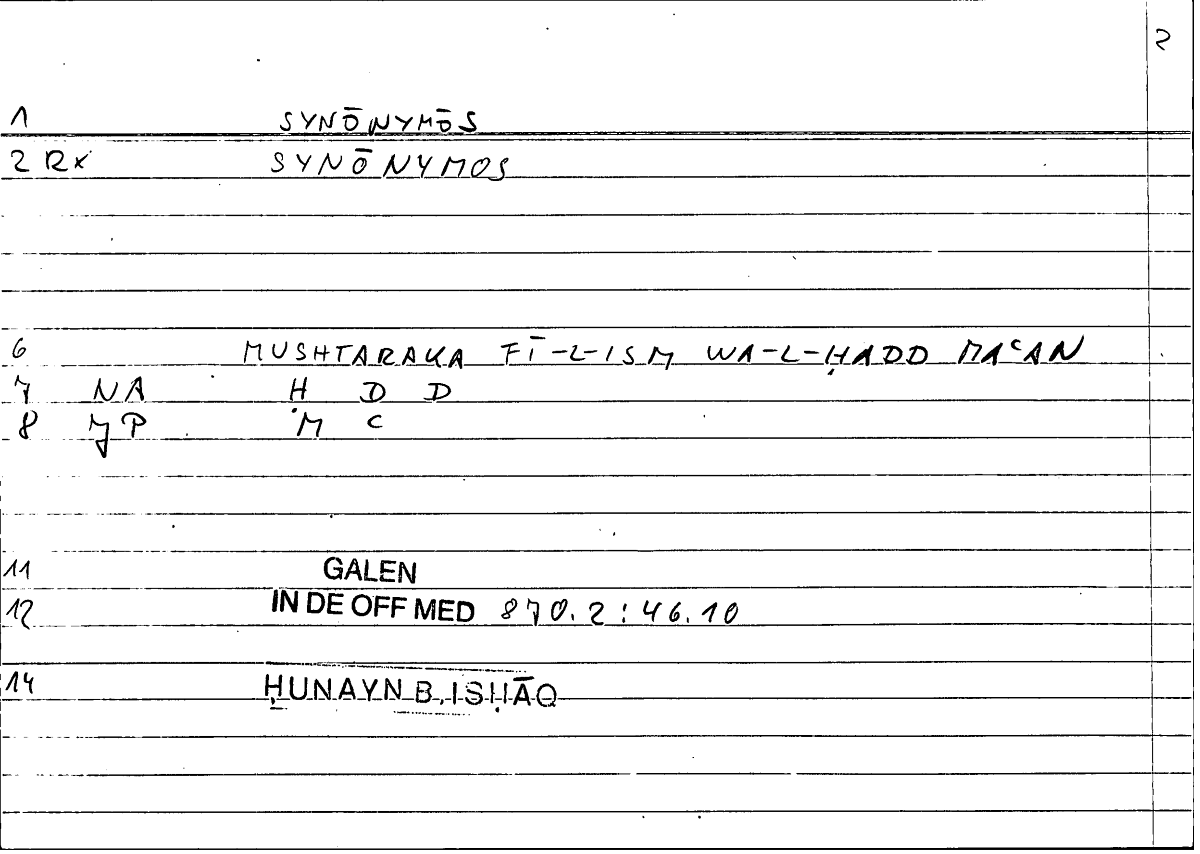 2
1 SYNŌNYMŌS
2 RX SYNŌNYMOS
6 MUSHTARAKA FĪ-L-ISM WA-L-ḤADD MAᶜAN
7 NA Ḥ D D
8 JP M C
11 GALEN
12 IN DE OFF MED 870.2:46.10
14 ḤUNAYN B. ISḤĀQ